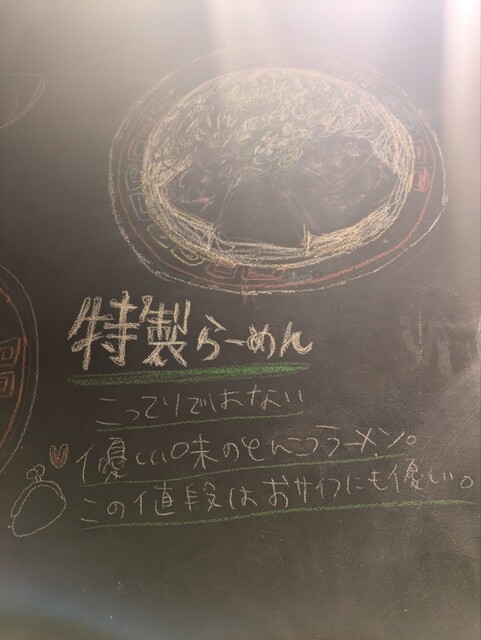 特製らーめん
こってりではない
優しい味のとんこつラーメン。
この値段はおサイフにも優しい。